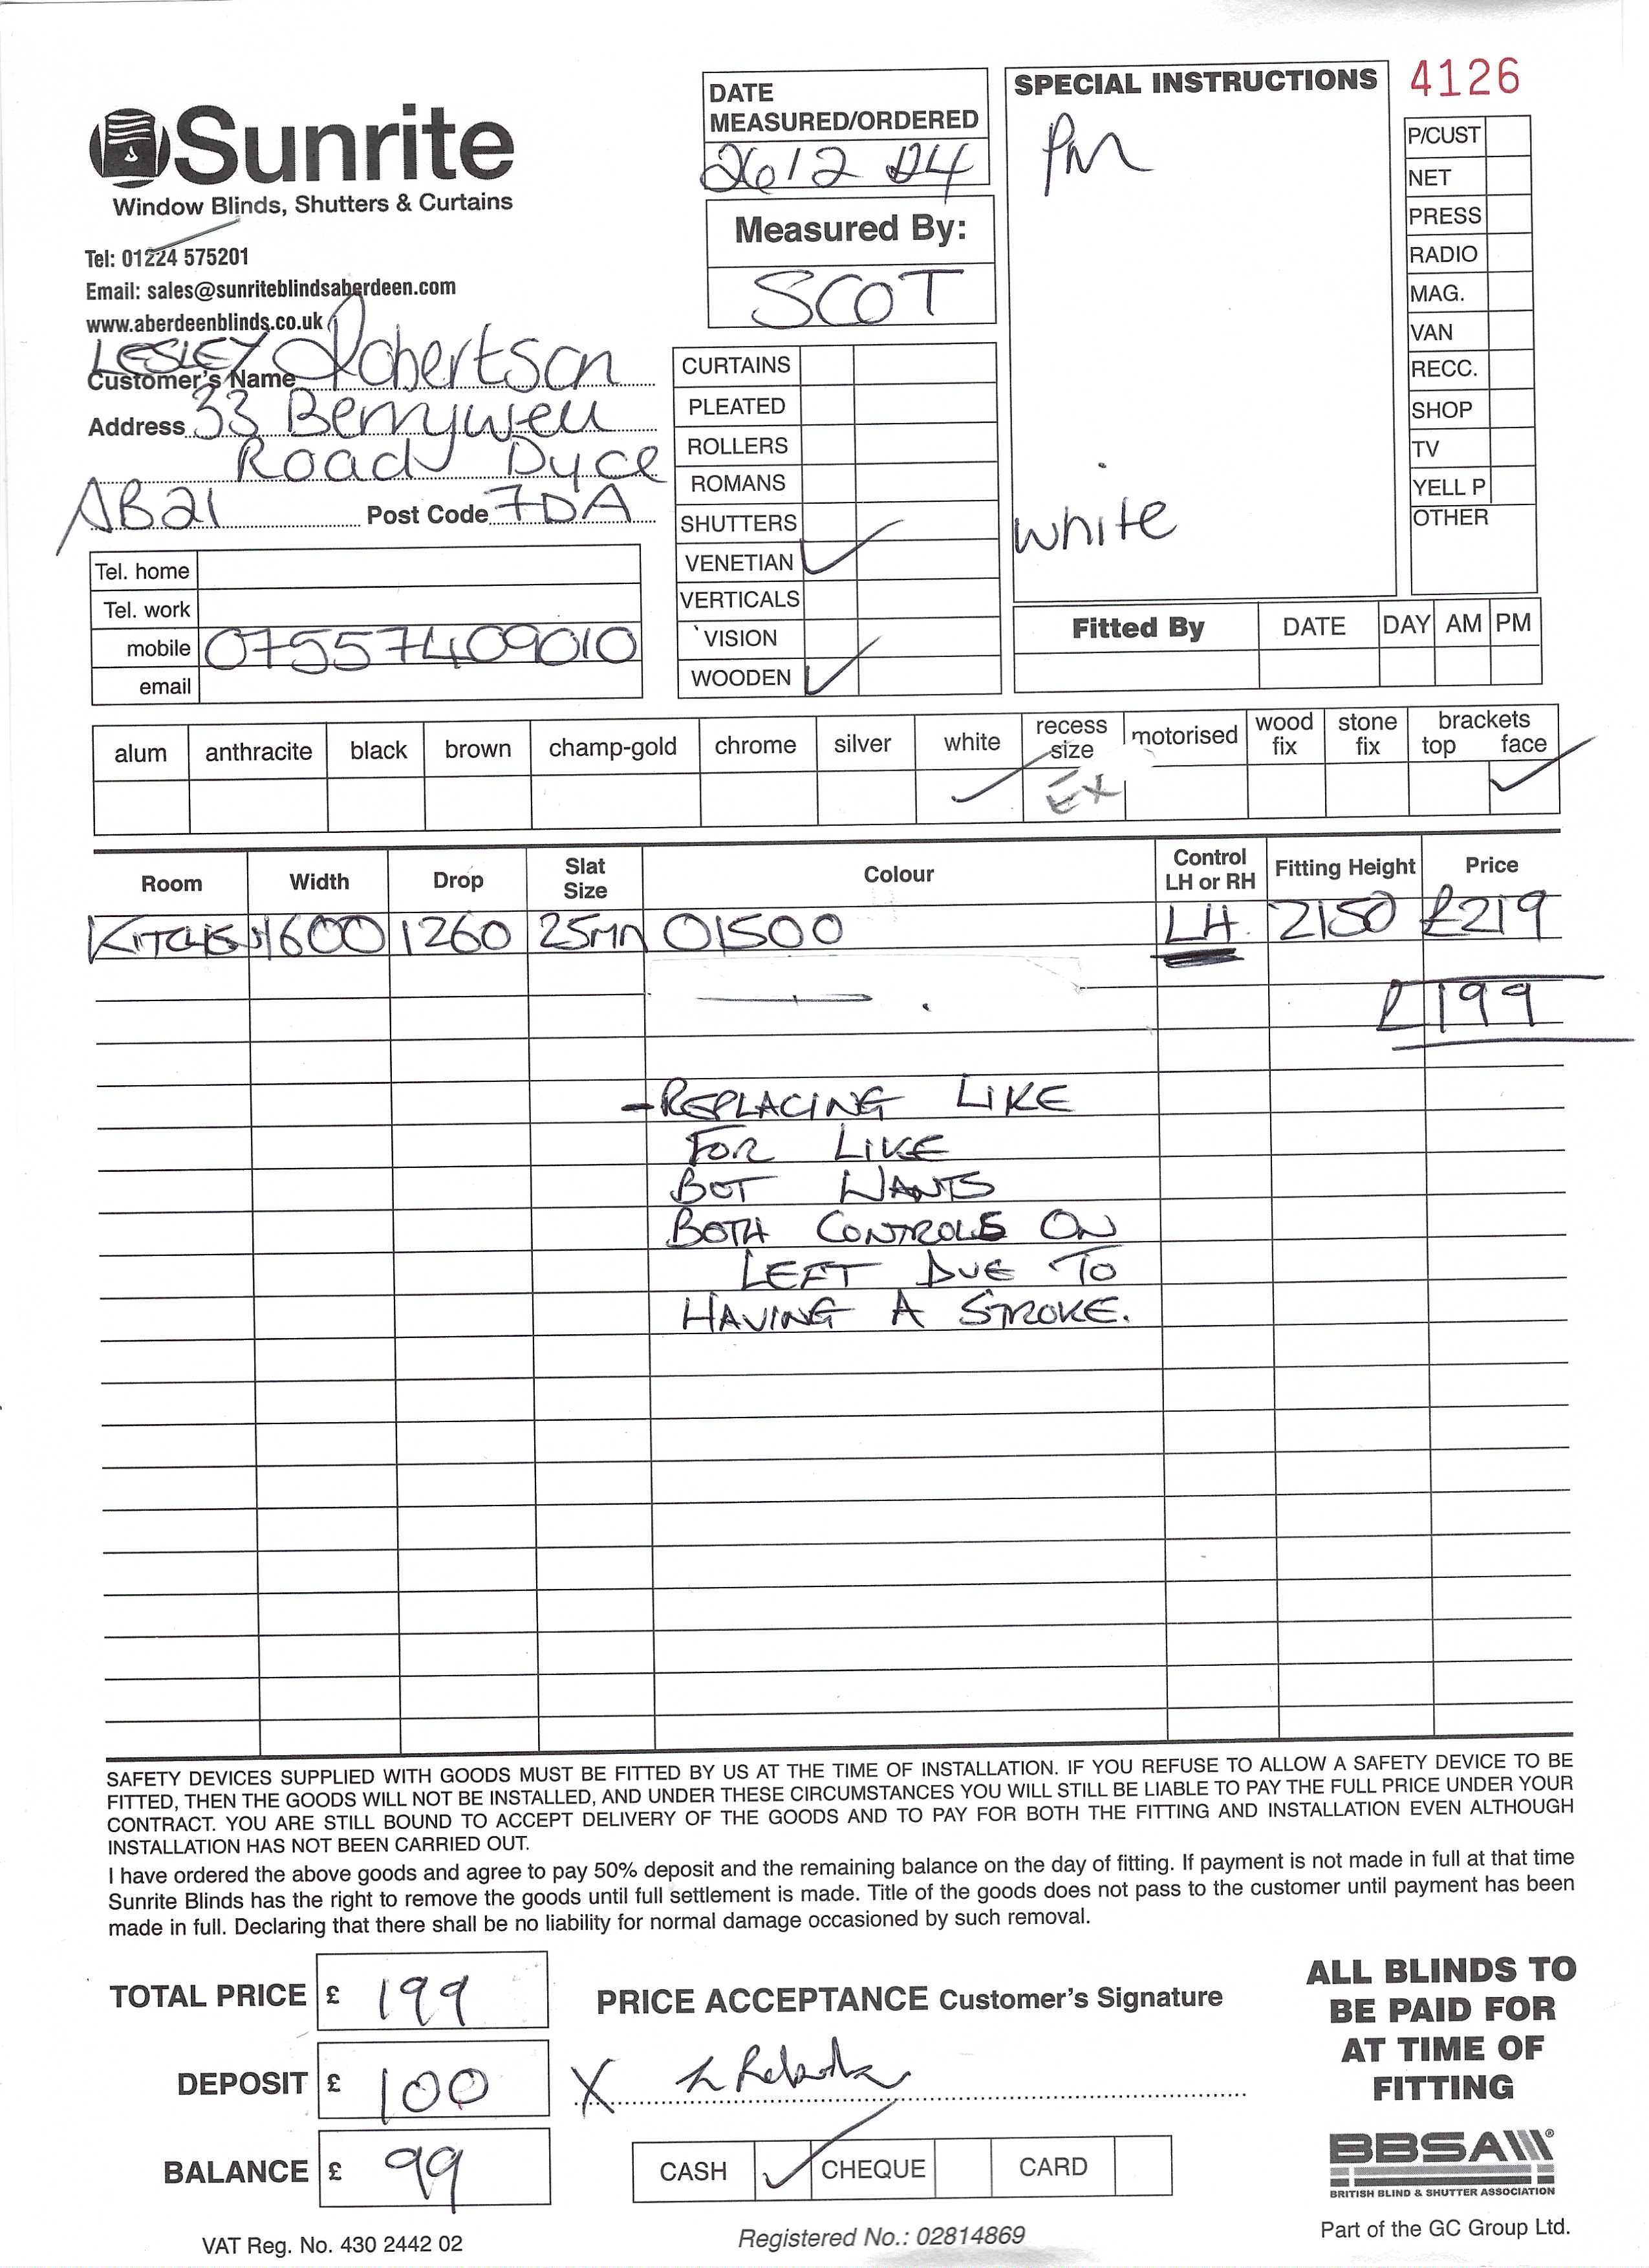 Sunrite
Window Blinds, Shutters & Curtains
Tel: 01224 575201
Email: sales@sunriteblindsaberdeen.com
www.aberdeenblinds.co.uk
DATE
MEASURED/ORDERED
26/2 24
Measured By:
SCOT
SPECIAL INSTRUCTIONS
PM
white
4126
P/CUST
NET
PRESS
RADIO
MAG.
VAN
RECC.
SHOP
TV
YELL P
OTHER
Customer's Name LESLEY Robertson
Address 33 Berrywell
Road Dyce
AB21 Post Code 7DA
Tel. home
Tel. work
mobile 07557409010
email
CURTAINS
PLEATED
ROLLERS
ROMANS
SHUTTERS
VENETIAN ✓
VERTICALS
VISION
WOODEN ✓
Fitted By DATE DAY AM PM
alum anthracite black brown champ-gold chrome silver white recess size motorised wood fix stone fix brackets top face
✓ EX ✓
Room Width Drop Slat Size Colour Control LH or RH Fitting Height Price
KITCHEN 1600 1260 25MM 01500 LH. 2150 £219
£199
- REPLACING LIKE
FOR LIKE
BOT WANTS
BOTH CONTROLS ON
LEFT DUE TO
HAVING A STROKE.
SAFETY DEVICES SUPPLIED WITH GOODS MUST BE FITTED BY US AT THE TIME OF INSTALLATION. IF YOU REFUSE TO ALLOW A SAFETY DEVICE TO BE
FITTED, THEN THE GOODS WILL NOT BE INSTALLED, AND UNDER THESE CIRCUMSTANCES YOU WILL STILL BE LIABLE TO PAY THE FULL PRICE UNDER YOUR
CONTRACT. YOU ARE STILL BOUND TO ACCEPT DELIVERY OF THE GOODS AND TO PAY FOR BOTH THE FITTING AND INSTALLATION EVEN ALTHOUGH
INSTALLATION HAS NOT BEEN CARRIED OUT.
I have ordered the above goods and agree to pay 50% deposit and the remaining balance on the day of fitting. If payment is not made in full at that time
Sunrite Blinds has the right to remove the goods until full settlement is made. Title of the goods does not pass to the customer until payment has been
made in full. Declaring that there shall be no liability for normal damage occasioned by such removal.
TOTAL PRICE £ 199
DEPOSIT £ 100
BALANCE £ 99
PRICE ACCEPTANCE Customer's Signature
X
CASH ✓ CHEQUE CARD
ALL BLINDS TO
BE PAID FOR
AT TIME OF
FITTING
BBSA
BRITISH BLIND & SHUTTER ASSOCIATION
Part of the GC Group Ltd.
VAT Reg. No. 430 2442 02
Registered No.: 02814869